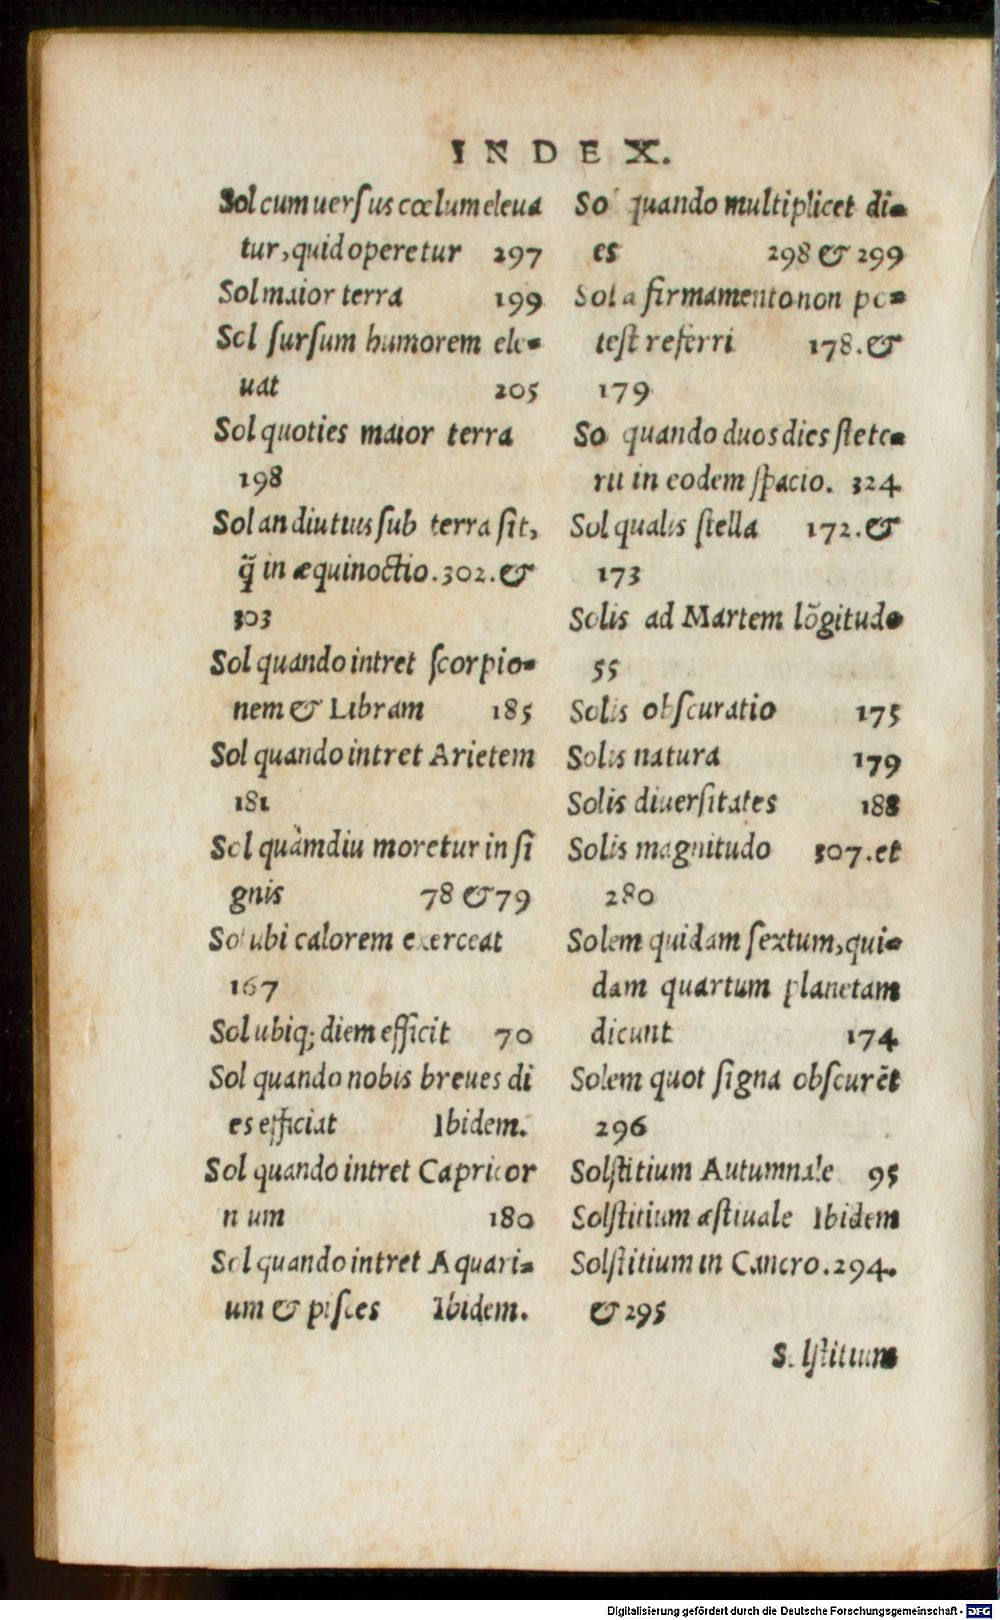 INDEX.
Sol cum uerſus cœlum eleua
tur, quid operetur 297
Sol maior terra 199
Sol ſurſum humorem ele-
uat 205
Sol quoties maior terra
198
Sol an diutius ſub terra ſit,
q̃ in æquinoctio. 302. &
303
Sol quando intret ſcorpio-
nem & Libram 185
Sol quando intret Arietem
181
Sol quàmdiu moretur in ſi
gnis 78 & 79
Sol ubi calorem exerceat
167
Sol ubiq; diem efficit 70
Sol quando nobis breues di
es efficiat Ibidem.
Sol quando intret Capricor
num 180
Sol quando intret Aquari-
um & piſces Ibidem.
Sol quando multiplicet di-
es 298 & 299
Sol a firmamento non po-
teſt referri 178. &
179
Sol quando duos dies ſtete-
rit in eodem ſpacio. 324
Sol qualis ſtella 172. &
173
Solis ad Martem lõgitudo
55
Solis obſcuratio 175
Solis natura 179
Solis diuerſitates 188
Solis magnitudo 307. et
280
Solem quidam ſextum, qui-
dam quartum planetam
dicunt 174
Solem quot ſigna obſcurẽt
296
Solſtitium Autumnale 95
Solſtitium æſtiuale Ibidem
Solſtitium in Cancro. 294.
& 295
Solſtitium
Digitalisierung gefördert durch die Deutsche Forschungsgemeinschaft - DFG